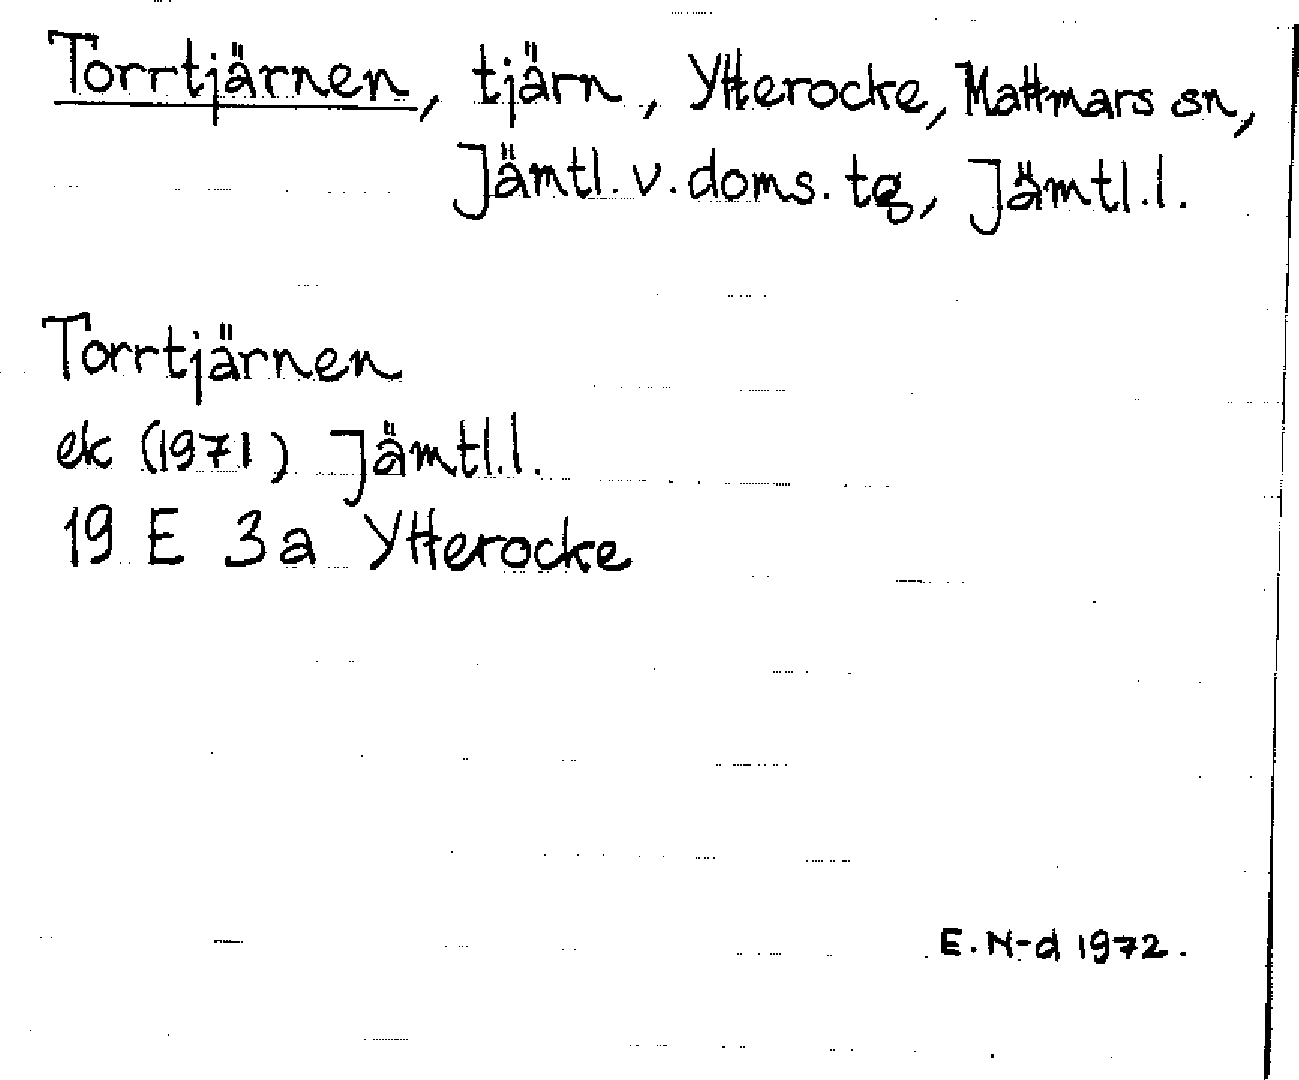 Torrtjärnen, tjärn, Ytterocke, Mattmars sn,
Jämtl. v. doms. tg, Jämtl. l.
Torrtjärnen
ek (1971) Jämtl. l.
19 E 3a Ytterocke
E. N-d 1972.